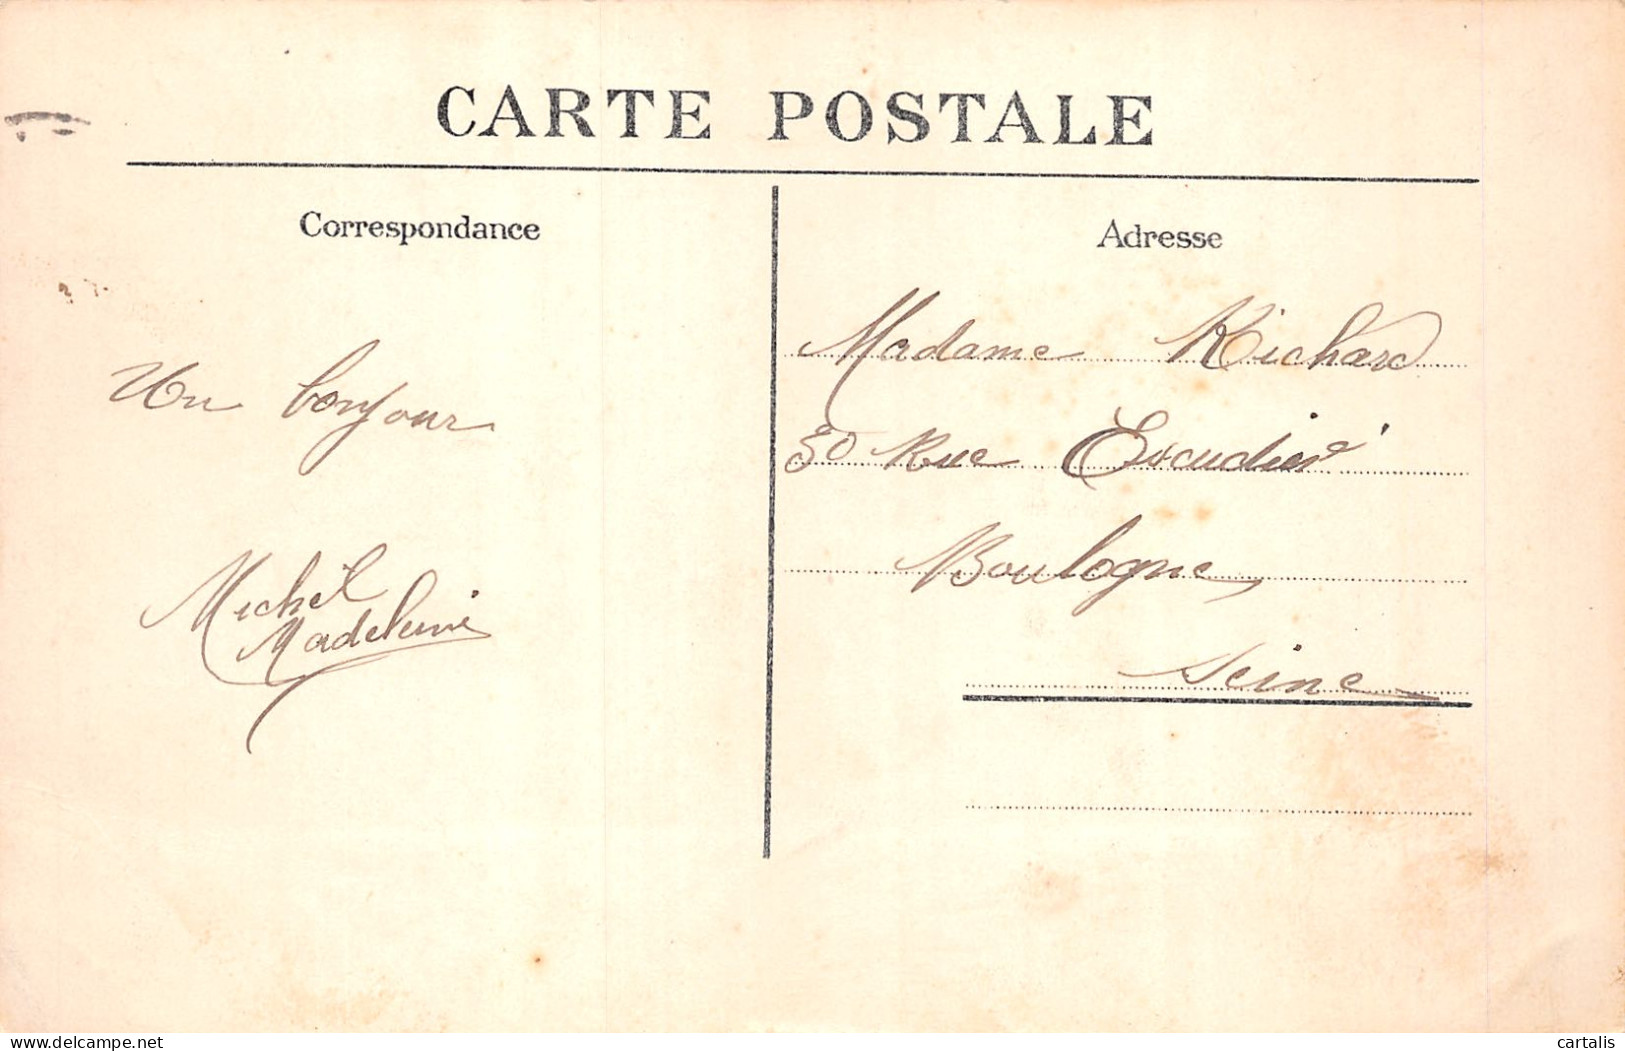 CARTE POSTALE
Correspondance
Un bonjour
Michel
Madeleine
Adresse
Madame Richard
30 Rue Escudier
Boulogne,
Seine
www.delcampe.net
cartalis